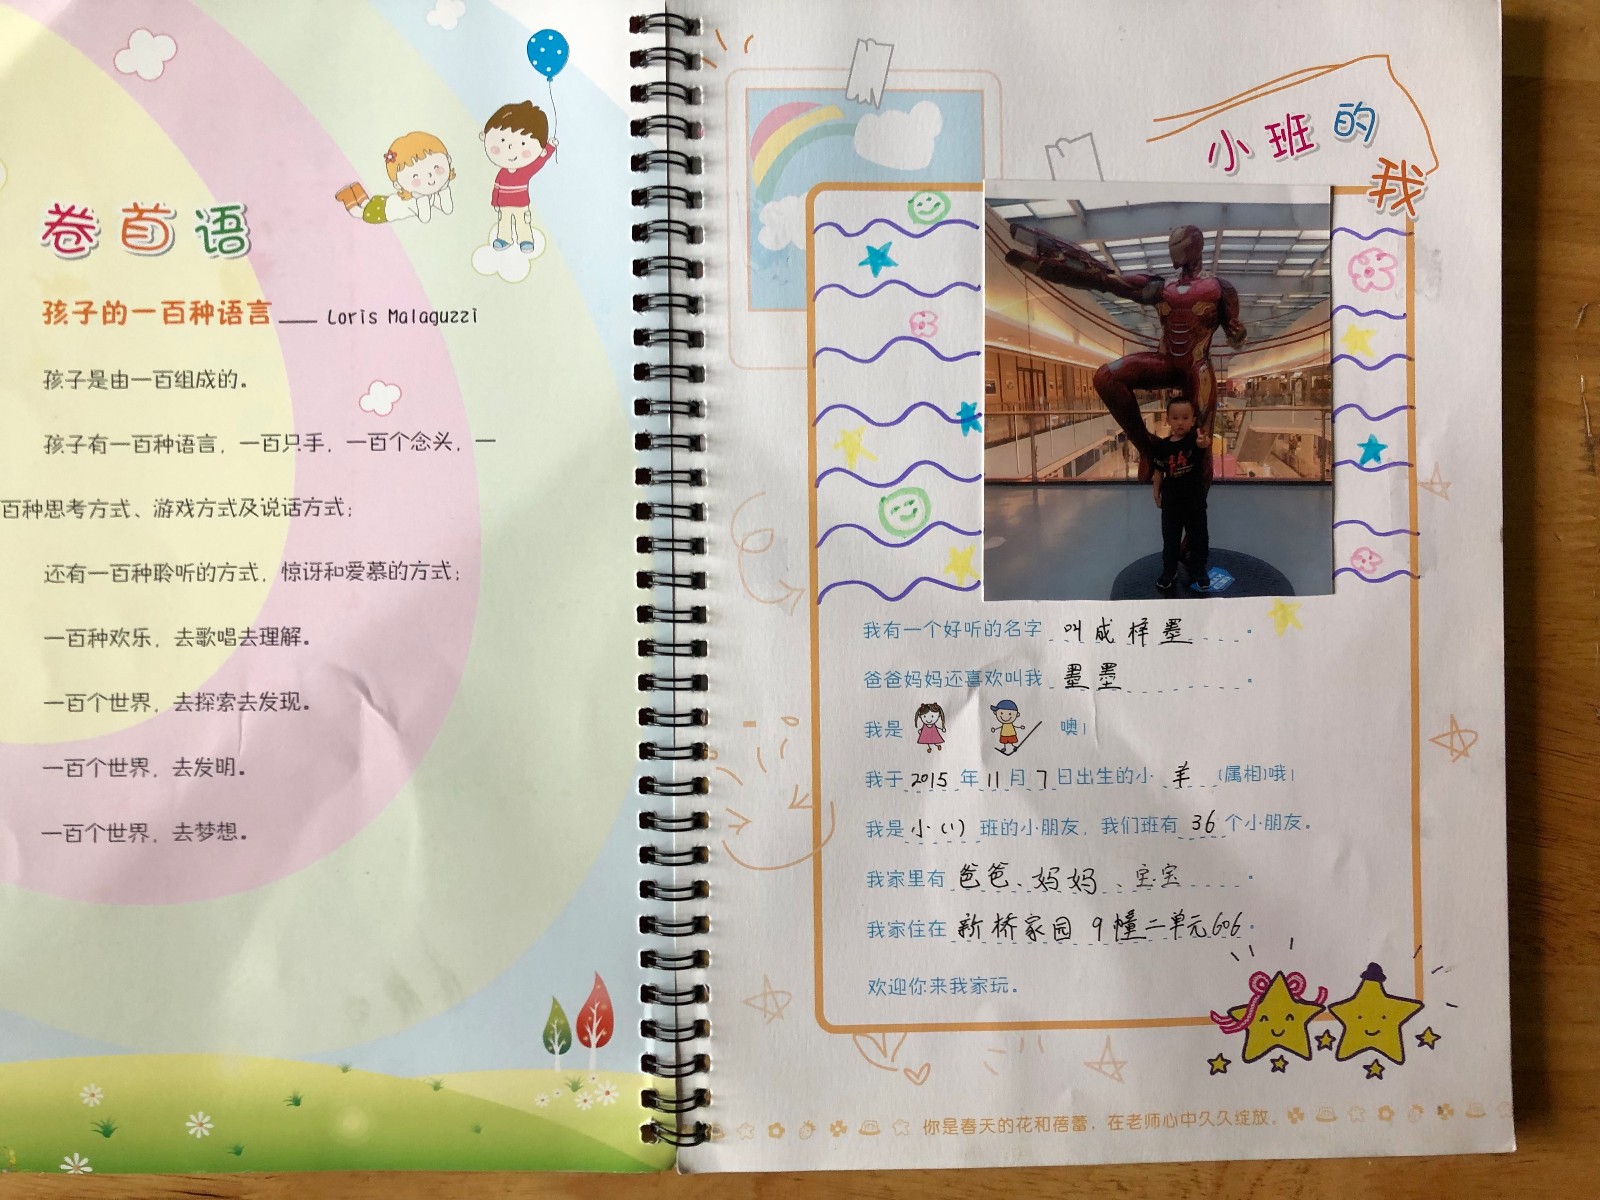 卷首语
孩子的一百种语言 —— Loris Malaguzzi
孩子是由一百组成的。
孩子有一百种语言，一百只手，一百个念头，一
百种思考方式、游戏方式及说话方式；
还有一百种聆听的方式，惊讶和爱慕的方式；
一百种欢乐，去歌唱去理解。
一百个世界，去探索去发现。
一百个世界，去发明。
一百个世界，去梦想。
小班的
我
我有一个好听的名字 叫成梓墨。
爸爸妈妈还喜欢叫我 墨墨。
我是 噢！
我于2015年11月7日出生的小羊（属相）哦！
我是小（1）班的小朋友，我们班有36个小朋友。
我家里有 爸爸、妈妈、宝宝。
我家住在 新桥家园 9幢二单元606。
欢迎你来我家玩。
你是春天的花和蓓蕾，在老师心中久久绽放。